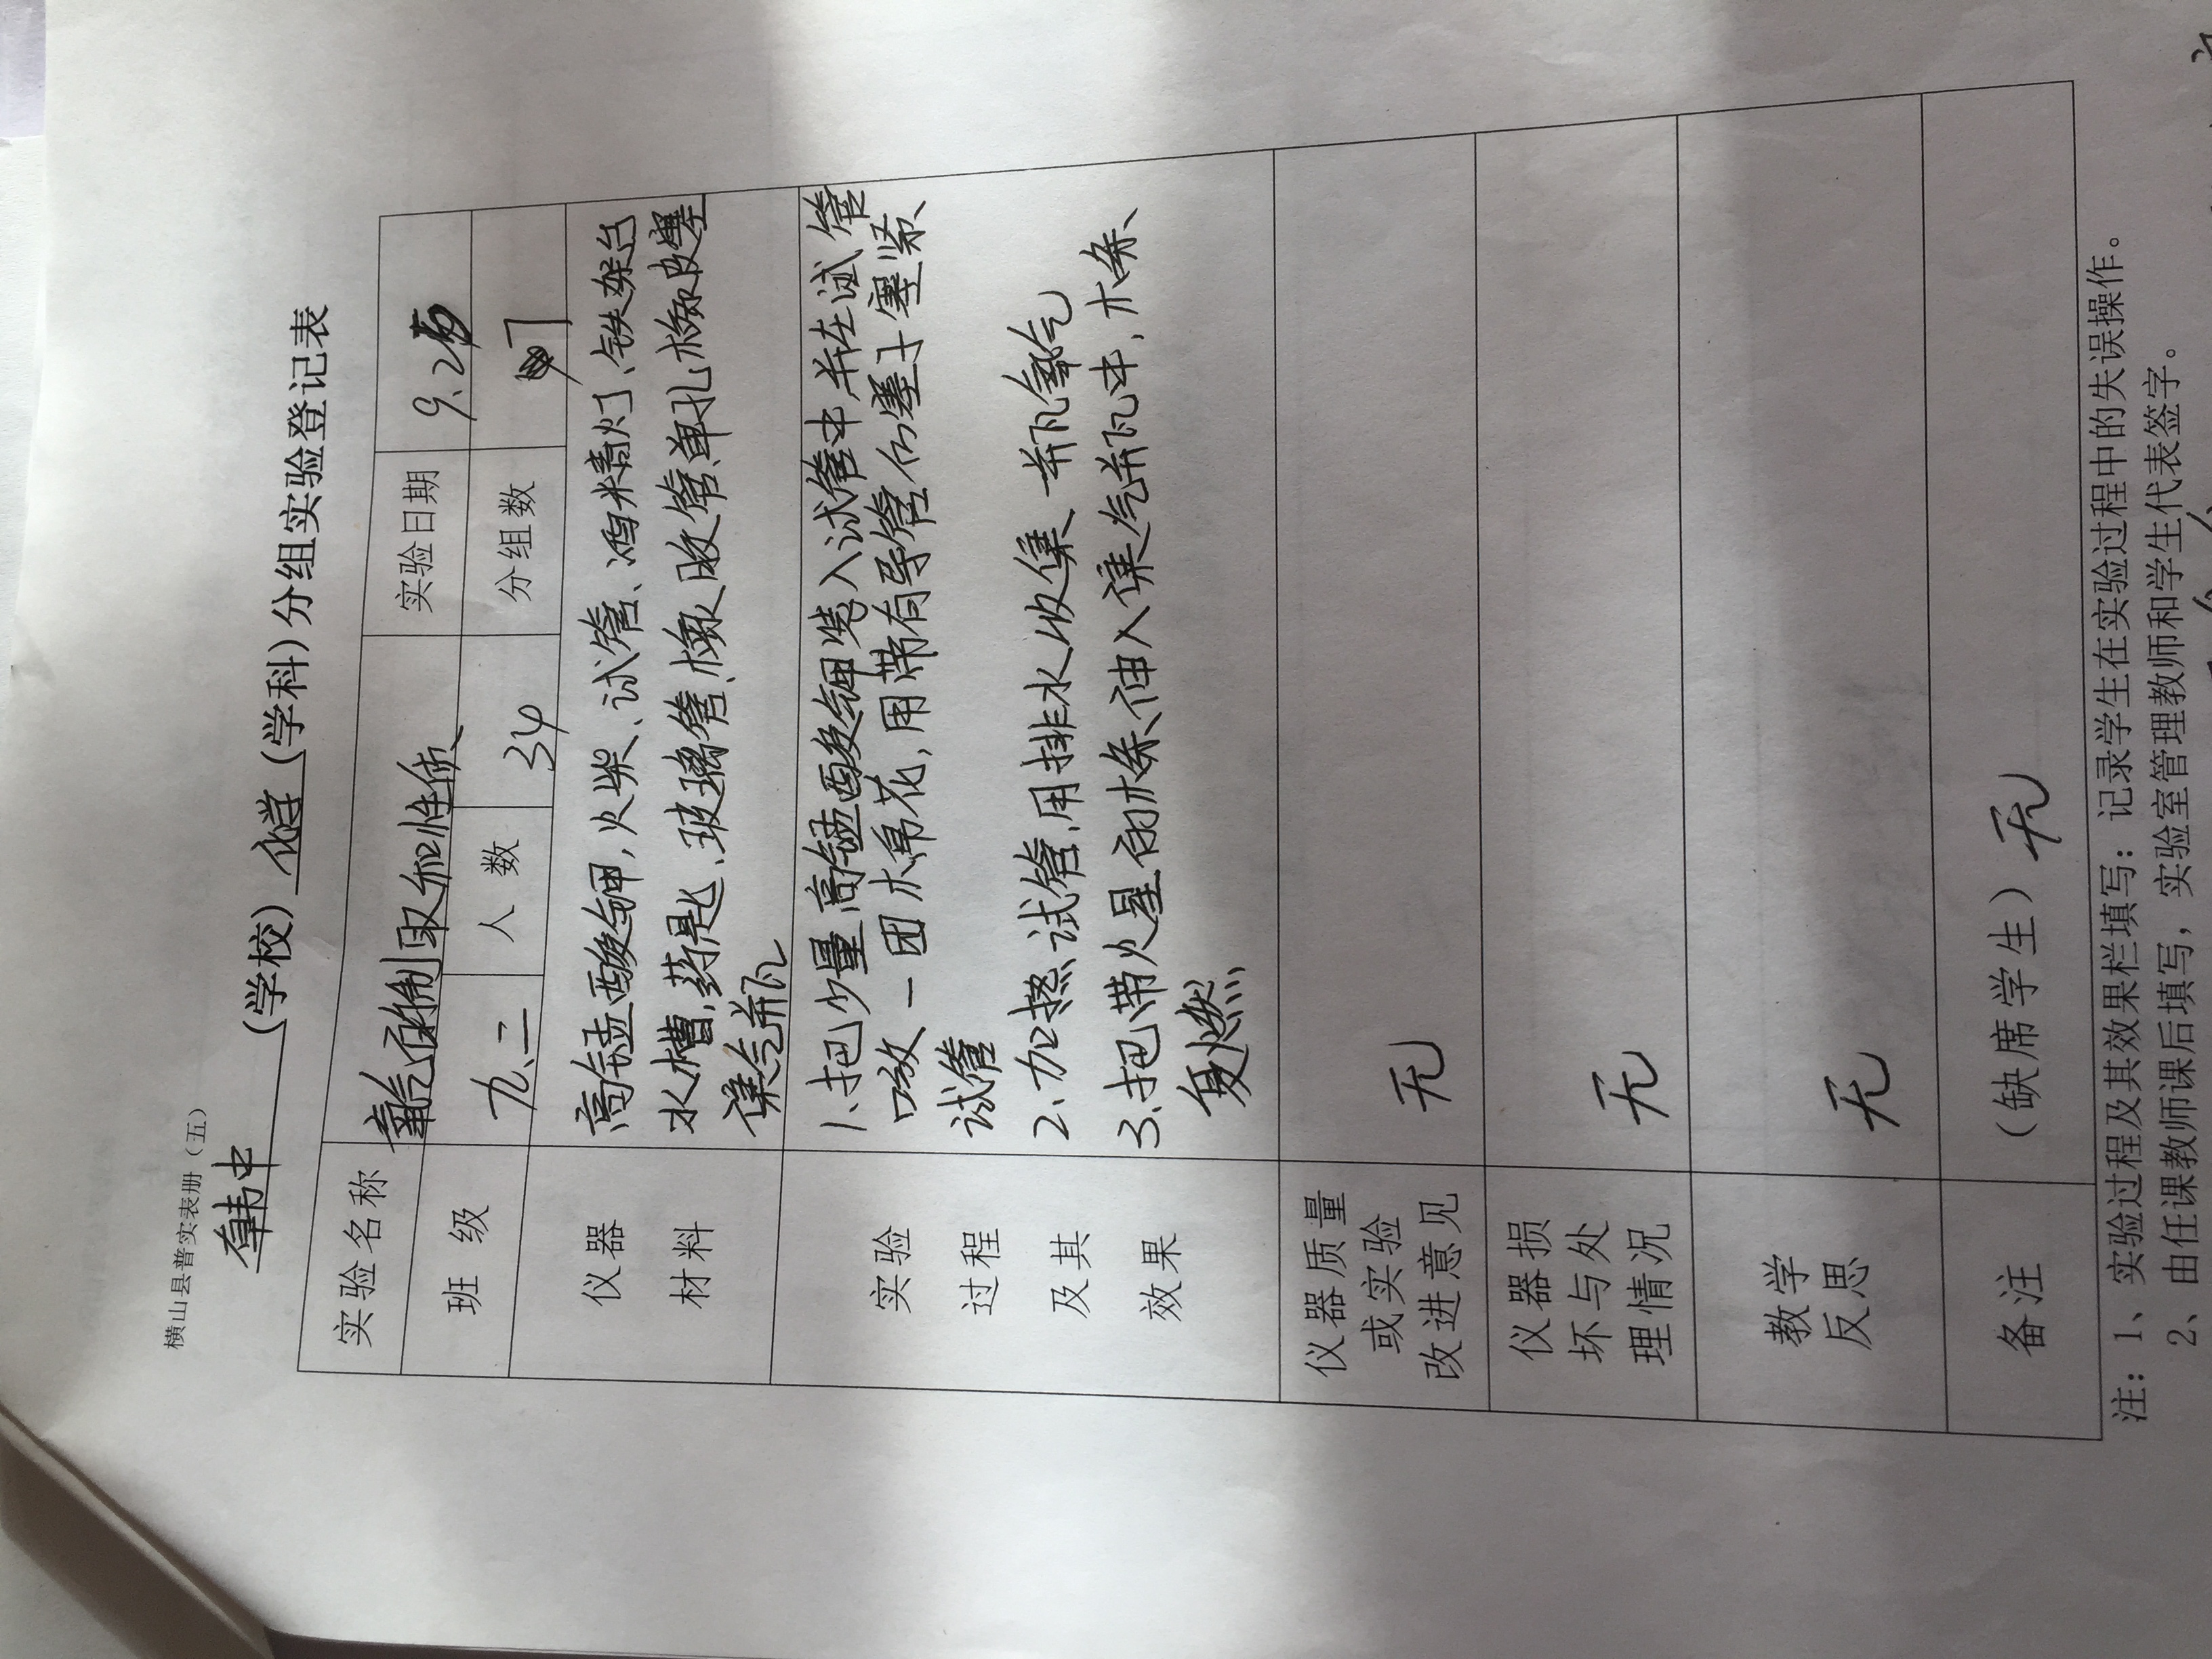 横山县普实表册（五）
韩中（学校）化学（学科）分组实验登记表
实验名称 氧气的制取和性质 实验日期 9.25
班级 九.二 人数 34 分组数 7
仪器材料 高锰酸钾,火柴、试管、酒精灯、铁架台
水槽,药匙、玻璃管、橡胶管、单孔橡皮塞
集气瓶
实验过程及其效果 1.把少量高锰酸钾装入试管中并在试管
口放一团棉花,用带有导管的塞子塞紧
试管
2.加热试管,用排水收集一瓶氧气
3.把带火星的木条,伸入集气瓶中,木条
复燃
仪器质量或实验改进意见 无
仪器损坏与处理情况 无
教学反思 无
备注 （缺席学生）无
注：1、实验过程及其效果栏填写：记录学生在实验过程中的失误操作。
2、由任课教师课后填写，实验室管理教师和学生代表签字。